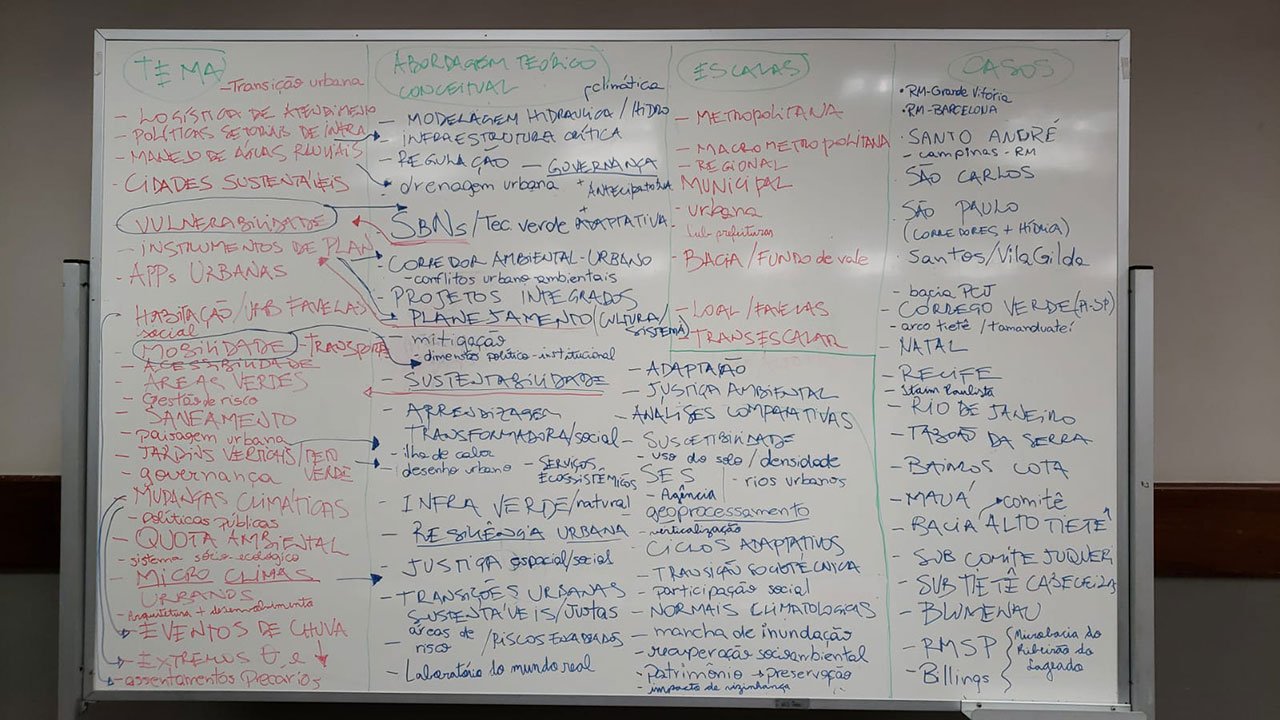 TEMA
-Transição urbana
- LOGÍSTICA DE ATENDIMENTO
- POLÍTICAS SETORIAIS DE INFRA
- MANEJO DE ÁGUAS PLUVIAIS
- CIDADES SUSTENTÁVEIS
VULNERABILIDADE
- INSTRUMENTOS DE PLAN
- APPs URBANAS
HABITAÇÃO/URB FAVELAS
social
- MOBILIDADE - TRANSPORTE
- ACESSIBILIDADE
- ÁREAS VERDES
- Gestão de risco
- SANEAMENTO
- paisagem urbana
- JARDINS VERTICAIS/TETO VERDE
- governança
- MUDANÇAS CLIMÁTICAS
- políticas públicas
- QUOTA AMBIENTAL
- sistema sócio-ecológico
- MICRO CLIMAS
URBANOS
- Arquitetura + desenvolvimento
- EVENTOS DE CHUVA
- EXTREMOS
- assentamentos precarios
ABORDAGEM TEÓRICO
CONCEITUAL
climática
- MODELAGEM HIDRAULICA/HIDRO
- INFRAESTRUTURA CRÍTICA
- REGULAÇÃO - GOVERNANÇA
- drenagem urbana + ANTECIPATÓRIA
+
SBNs/Tec. verde ADAPTATIVA
- CORREDOR AMBIENTAL-URBANO
- conflitos urbano ambientais
- PROJETOS INTEGRADOS
- PLANEJAMENTO (CULTURA/
SISTEMA)
- mitigação
- dimensão político-institucional
- SUSTENTABILIDADE
- APRENDIZAGEM
TRANSFORMADORA/social
- ilha de calor
- desenho urbano - SERVIÇOS
ECOSSISTÊMICOS
- INFRA VERDE/natural
- RESILIÊNCIA URBANA
- JUSTIÇA espacial/social
- TRANSIÇÕES URBANAS
SUSTENTÁVEIS/JUSTAS
- áreas de
risco
- Laboratório do mundo real
- ADAPTAÇÃO
- JUSTIÇA AMBIENTAL
- ANÁLISES COMPARATIVAS
- SUSCETIBILIDADE
- uso do solo/densidade
- SES
- rios urbanos
- Agência
- geoprocessamento
- verticalização
- CICLOS ADAPTATIVOS
- TRANSIÇÃO SOCIOTÉCNICA
- participação social
- NORMAIS CLIMATOLOGICAS
- mancha de inundação
- recuperação socioambiental
- patrimônio → preservação
- impacto de vizinhança
ESCALAS
- METROPOLITANA
- MACROMETROPOLITANA
- REGIONAL
MUNICIPAL
- urbana
- Sub prefeituras
- BACIA/FUNDO de vale
- LOCAL/FAVELAS
- TRANSESCALAR
CASOS
• RM-Grande Vitória
• RM-BARCELONA
• SANTO ANDRÉ
- campinas-RM
- SÃO CARLOS
- SÃO PAULO
(CORREDORES + HÍDRICA)
- Santos/Vila Gilda
- bacia PCJ
- CÓRREGO VERDE (PI-SP)
- arco tietê/tamanduateí
- NATAL
- RECIFE
- RIO DE JANEIRO
- TABOÃO DA SERRA
- BAIRROS COTA
- MAUÁ
comitê
- BACIA ALTO TIETÊ
- SUB COMITE JUQUERI
- SUB TIETÊ CABECEIRAS
- BLUMENAU
- RMSP
- Billings
Microbacia do
Ribeirão do
Lageado